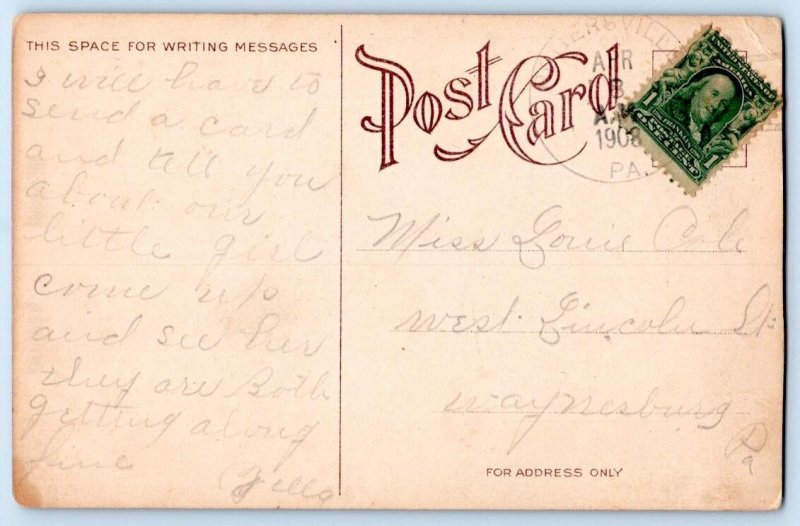 THIS SPACE FOR WRITING MESSAGES
I will have to
send a card
and tell you
about our
little girl
come up
and see her
they are Both
getting along
fine
Post Card
APR
3
1908
PA.
1 1
Miss Louie
West. Lincoln St
Waynesburg
Pa
FOR ADDRESS ONLY